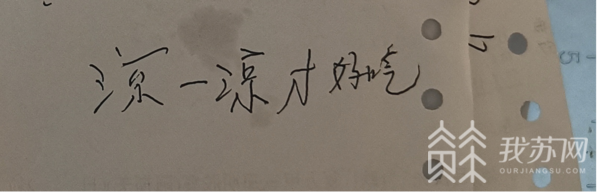 凉一凉才好吃
我苏网
OURJIANGSU.COM